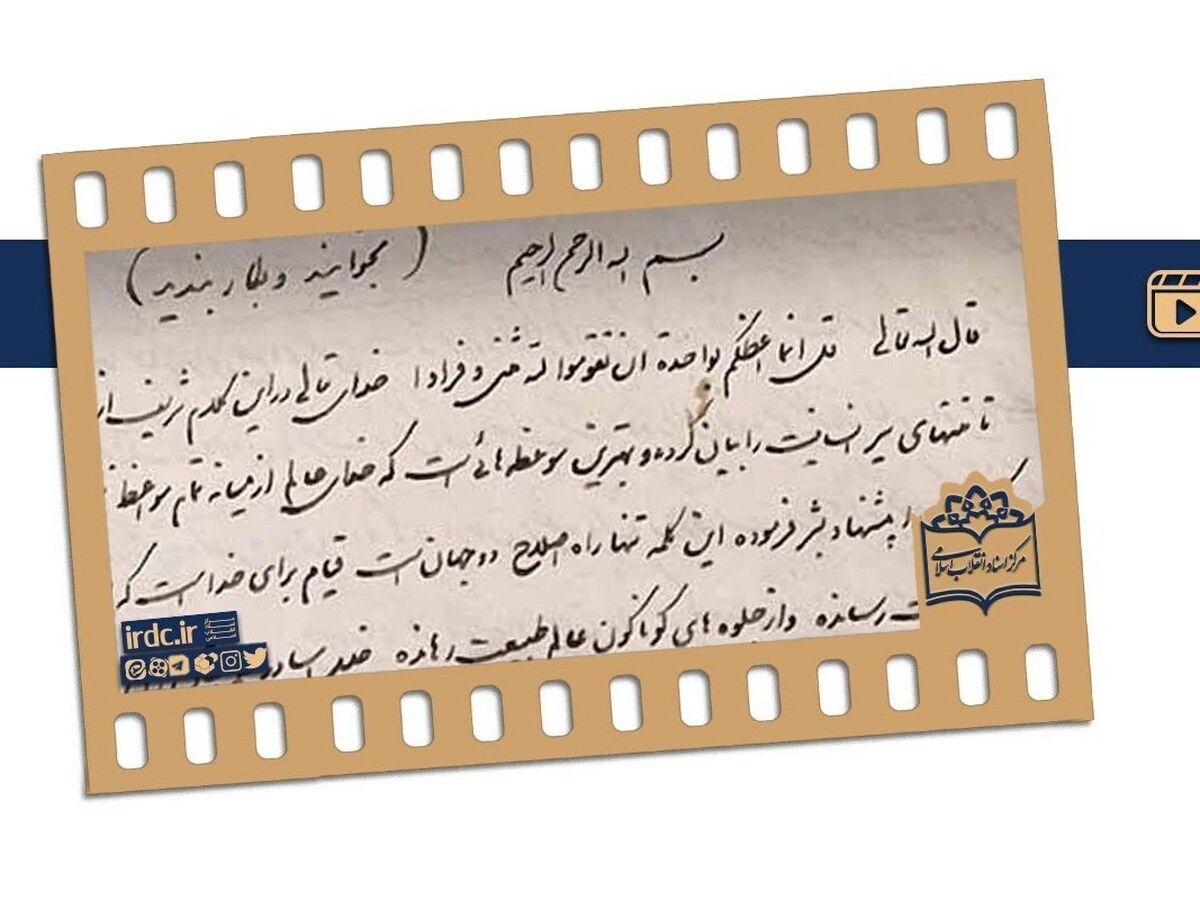 بسم الله الرحمن الرحیم (بخوانید و بکار بندید)
قال الله تعالی قل انما اعظکم بواحدة ان تقوموا لله مثنی و فرادا خدای تعالی در این کلام شریف از
تا منتهای سیر انسانیت را بیان کرده و بهترین موعظه هائی است که خدای عالم از میانه تمام مواعظ
پیشنهاد بشر فرموده این کلمه تنها راه اصلاح دو جهان است قیام برای خداست که
رسانده و از جلوه های گوناگون عالم طبیعت رهانده
مرکز اسناد انقلاب اسلامی
irdc.ir